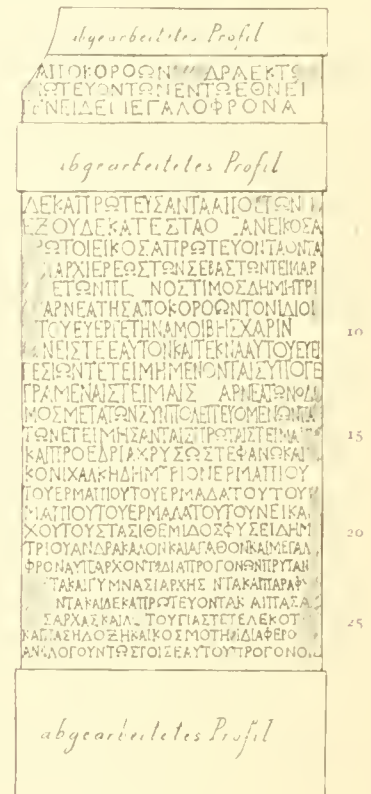 abgearbeitetes Profil
ΑΠΟΚΟΡΟΩΝ ΔΡΑΕΚΤΩ
ΩΤΕΥΟΝΤΩΝΕΝΤΩΕΘΝΕΙ
ΓΕΝΕΙΔΕΙΜΕΓΑΛΟΦΡΟΝΑ
abgearbeitetes Profil
ΔΕΚΑΠΡΩΤΕΥΣΑΝΤΑΑΠΟΕΤΩΝ
ΕΞΟΥΔΕΚΑΤΕΣΤΑΟ ΑΝΕΙΚΟΣΑ
ΡΩΤΟΙΕΙΚΟΣΑΠΡΩΤΕΥΟΝΤΑΟΝΤΑ
ΑΡΧΙΕΡΕΩΣΤΩΝΣΕΒΑΣΤΩΝΤΕΙΜΑΡ
ΕΤΩΝΠΕ ΝΟΣΤΙΜΟΣΔΗΜΗΤΡΙ
ΑΡΝΕΑΤΗΣΑΠΟΚΟΡΟΩΝΤΟΝΙΔΙΟΙ
ΤΟΥΕΥΕΡΓΕΤΗΝΑΜΟΙΒΗΣΧΑΡΙΝ 10
ΝΕΙΣΤΕΕΑΥΤΟΝΚΑΙΤΕΚΝΑΑΥΤΟΥΕΥΕΡ
ΓΕΣΙΩΝΤΕΤΕΙΜΗΜΕΝΟΝΤΑΙΣΥΠΟΓΕ
ΓΡΑΜΕΝΑΙΣΤΕΙΜΑΙΣ ΑΡΝΕΑΤΩΝΟΔΗ
ΜΟΣΜΕΤΑΤΩΝΣΥΝΠΟΛΕΙΤΕΥΟΜΕΝΩΝΠΑ
ΤΩΝΕΤΕΙΜΗΣΑΝΤΑΙΣΠΡΩΤΑΙΣΤΕΙΜΑΙ 15
ΚΑΙΠΡΟΕΔΡΙΑΧΡΥΣΩΣΤΕΦΑΝΩΚΑΙ
ΚΟΝΙΧΑΛΚΗΔΗΜΤΡΙΟΝΕΡΜΑΠΙΟΥ
ΤΟΥΕΡΜΑΠΙΟΥΤΟΥΕΡΜΑΔΑΤΟΥΤΟΥ
ΜΑΠΙΟΥΤΟΥΕΡΜΑΛΑΤΟΥΤΟΥΝΕΙΚΑ
ΧΟΥΤΟΥΣΤΑΣΙΘΕΜΙΔΟΣΦΥΣΕΙΔΗΜ 20
ΤΡΙΟΥΑΝΔΡΑΚΑΛΟΝΚΑΙΑΓΑΘΟΝΚΑΙΜΕΓΑΛ
ΦΡΟΝΑΥΠΑΡΧΟΝΤΑΔΙΑΠΡΟΓΟΝΩΝΠΡΥΤΑΝ
ΤΑΚΑΙΓΥΜΝΑΣΙΑΡΧΗΣ ΝΤΑΚΑΙΠΑΡΑΦ
ΝΤΑΚΑΙΔΕΚΑΠΡΩΤΕΥΟΝΤΑΚ ΑΙΠΑΣΑ
ΣΑΡΧΑΣΚΑΙΛ ΤΟΥΓΙΑΣΤΕΤΕΛΕΚΟΤ 25
ΚΑΙΠΑΣΗΔΟΞΗΚΑΙΚΟΣΜΟΤΗΤΙΔΙΑΦΕΡΟ
ΑΝΑΛΟΓΟΥΝΤΩΣΤΟΙΣΕΑΥΤΟΥΠΡΟΓΟΝΟ
abgearbeitetes Profil